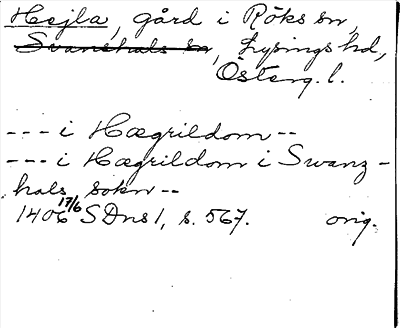 Hejla, gård i Röks sn,
Svanshals sn, Lysings hd,
Österg. l.
--- i Hægrildom --
--- i Hægrildom i Swanz-
hals sokn --
1406 17/6 SDns 1, s. 567. orig.